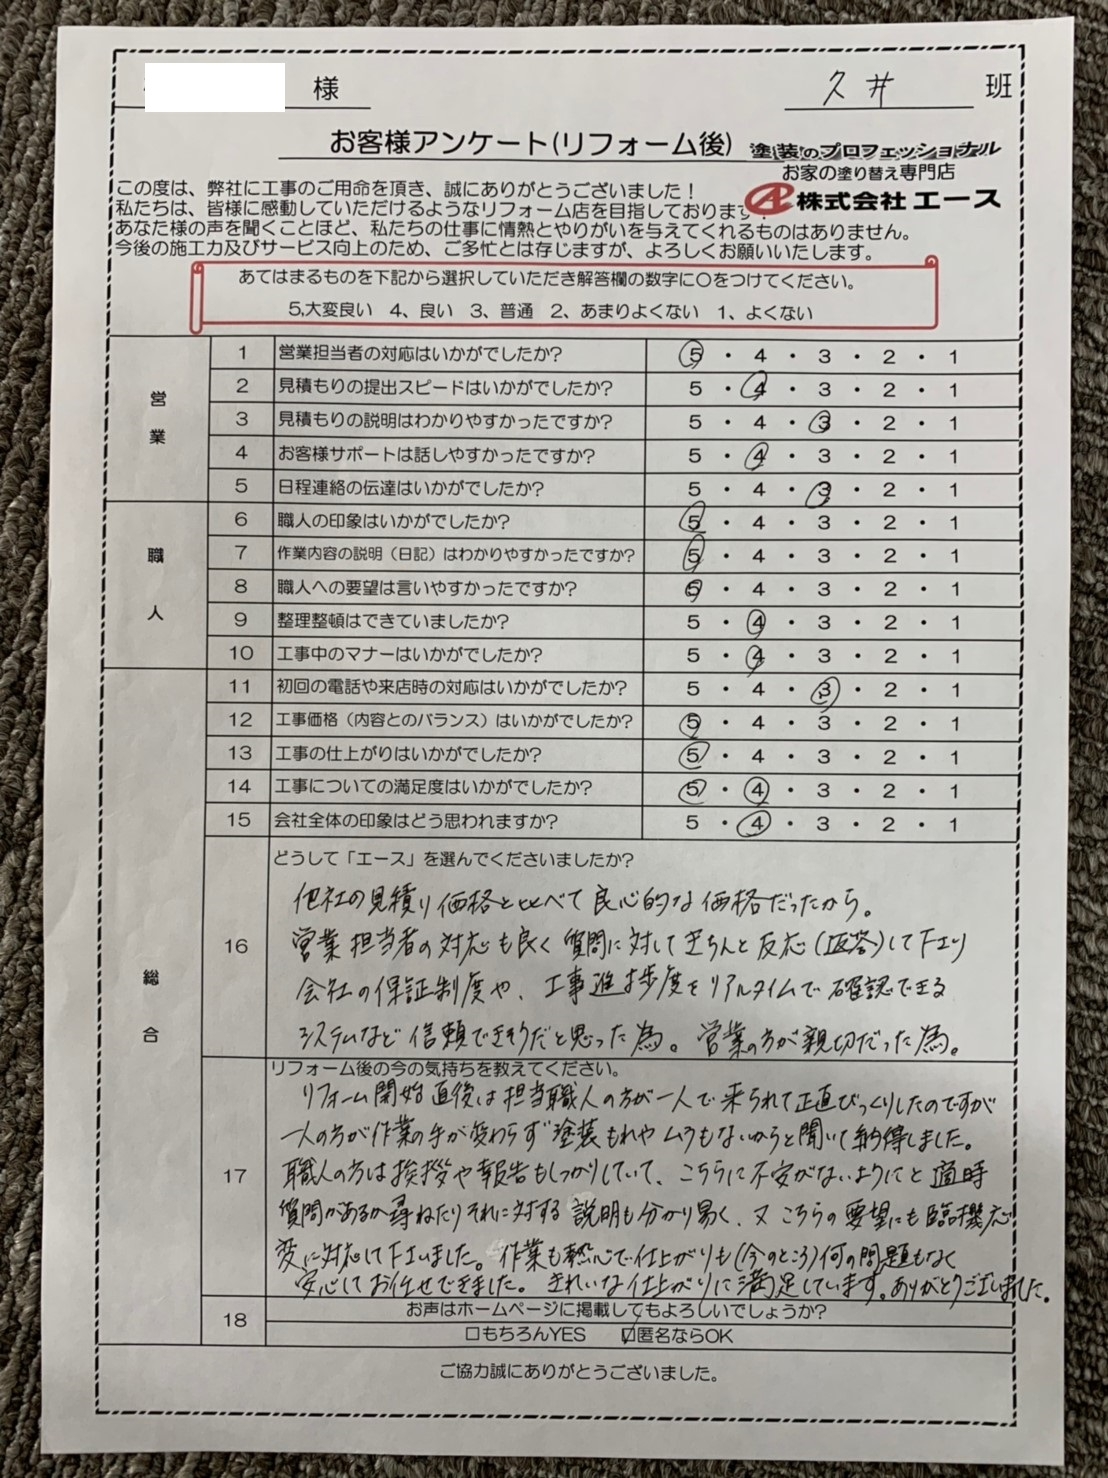 様
久井 班
お客様アンケート(リフォーム後)
塗装のプロフェッショナル
お家の塗り替え専門店
株式会社 エース
この度は、弊社に工事のご用命を頂き、誠にありがとうございました！
私たちは、皆様に感動していただけるようなリフォーム店を目指しております！
あなた様の声を聞くことほど、私たちの仕事に情熱とやりがいを与えてくれるものはありません。
今後の施工力及びサービス向上のため、ご多忙とは存じますが、よろしくお願いいたします。
あてはまるものを下記から選択していただき解答欄の数字に〇をつけてください。
5,大変良い 4、良い 3、普通 2、あまりよくない 1、よくない
営業
1 営業担当者の対応はいかがでしたか? 5・4・3・2・1
2 見積もりの提出スピードはいかがでしたか? 5・4・3・2・1
3 見積もりの説明はわかりやすかったですか? 5・4・3・2・1
4 お客様サポートは話しやすかったですか? 5・4・3・2・1
5 日程連絡の伝達はいかがでしたか? 5・4・3・2・1
職人
6 職人の印象はいかがでしたか? 5・4・3・2・1
7 作業内容の説明（日記）はわかりやすかったですか? 5・4・3・2・1
8 職人への要望は言いやすかったですか? 5・4・3・2・1
9 整理整頓はできていましたか? 5・4・3・2・1
10 工事中のマナーはいかがでしたか? 5・4・3・2・1
総合
11 初回の電話や来店時の対応はいかがでしたか? 5・4・3・2・1
12 工事価格（内容とのバランス）はいかがでしたか? 5・4・3・2・1
13 工事の仕上がりはいかがでしたか? 5・4・3・2・1
14 工事についての満足度はいかがでしたか? 5・4・3・2・1
15 会社全体の印象はどう思われますか? 5・4・3・2・1
16 どうして「エース」を選んでくださいましたか?
他社の見積り価格と比べて良心的な価格だったから。
営業担当者の対応も良く質問に対してきちんと反応(返答)して下さり
会社の保証制度や、工事進捗度をリアルタイムで確認できる
システムなど信頼できそうだと思った為。営業の方が親切だった為。
17 リフォーム後の今の気持ちを教えてください。
リフォーム開始直後は担当職人の方が一人で来られて正直びっくりしたのですが
一人の方が作業の手が変わらず塗装もれやムラもないからと聞いて納得しました。
職人の方は挨拶や報告もしっかりしていて、こちらに不安がないようにと適時
質問があるか尋ねたりそれに対する説明も分かり易く、又こちらの要望にも臨機応
変に対応して下さいました。作業も熱心で仕上がりも(今のところ)何の問題もなく
安心してお任せできました。きれいな仕上がりに満足しています。ありがとうございました。
18 お声はホームページに掲載してもよろしいでしょうか?
□もちろんYES ☑匿名ならOK
ご協力誠にありがとうございました。